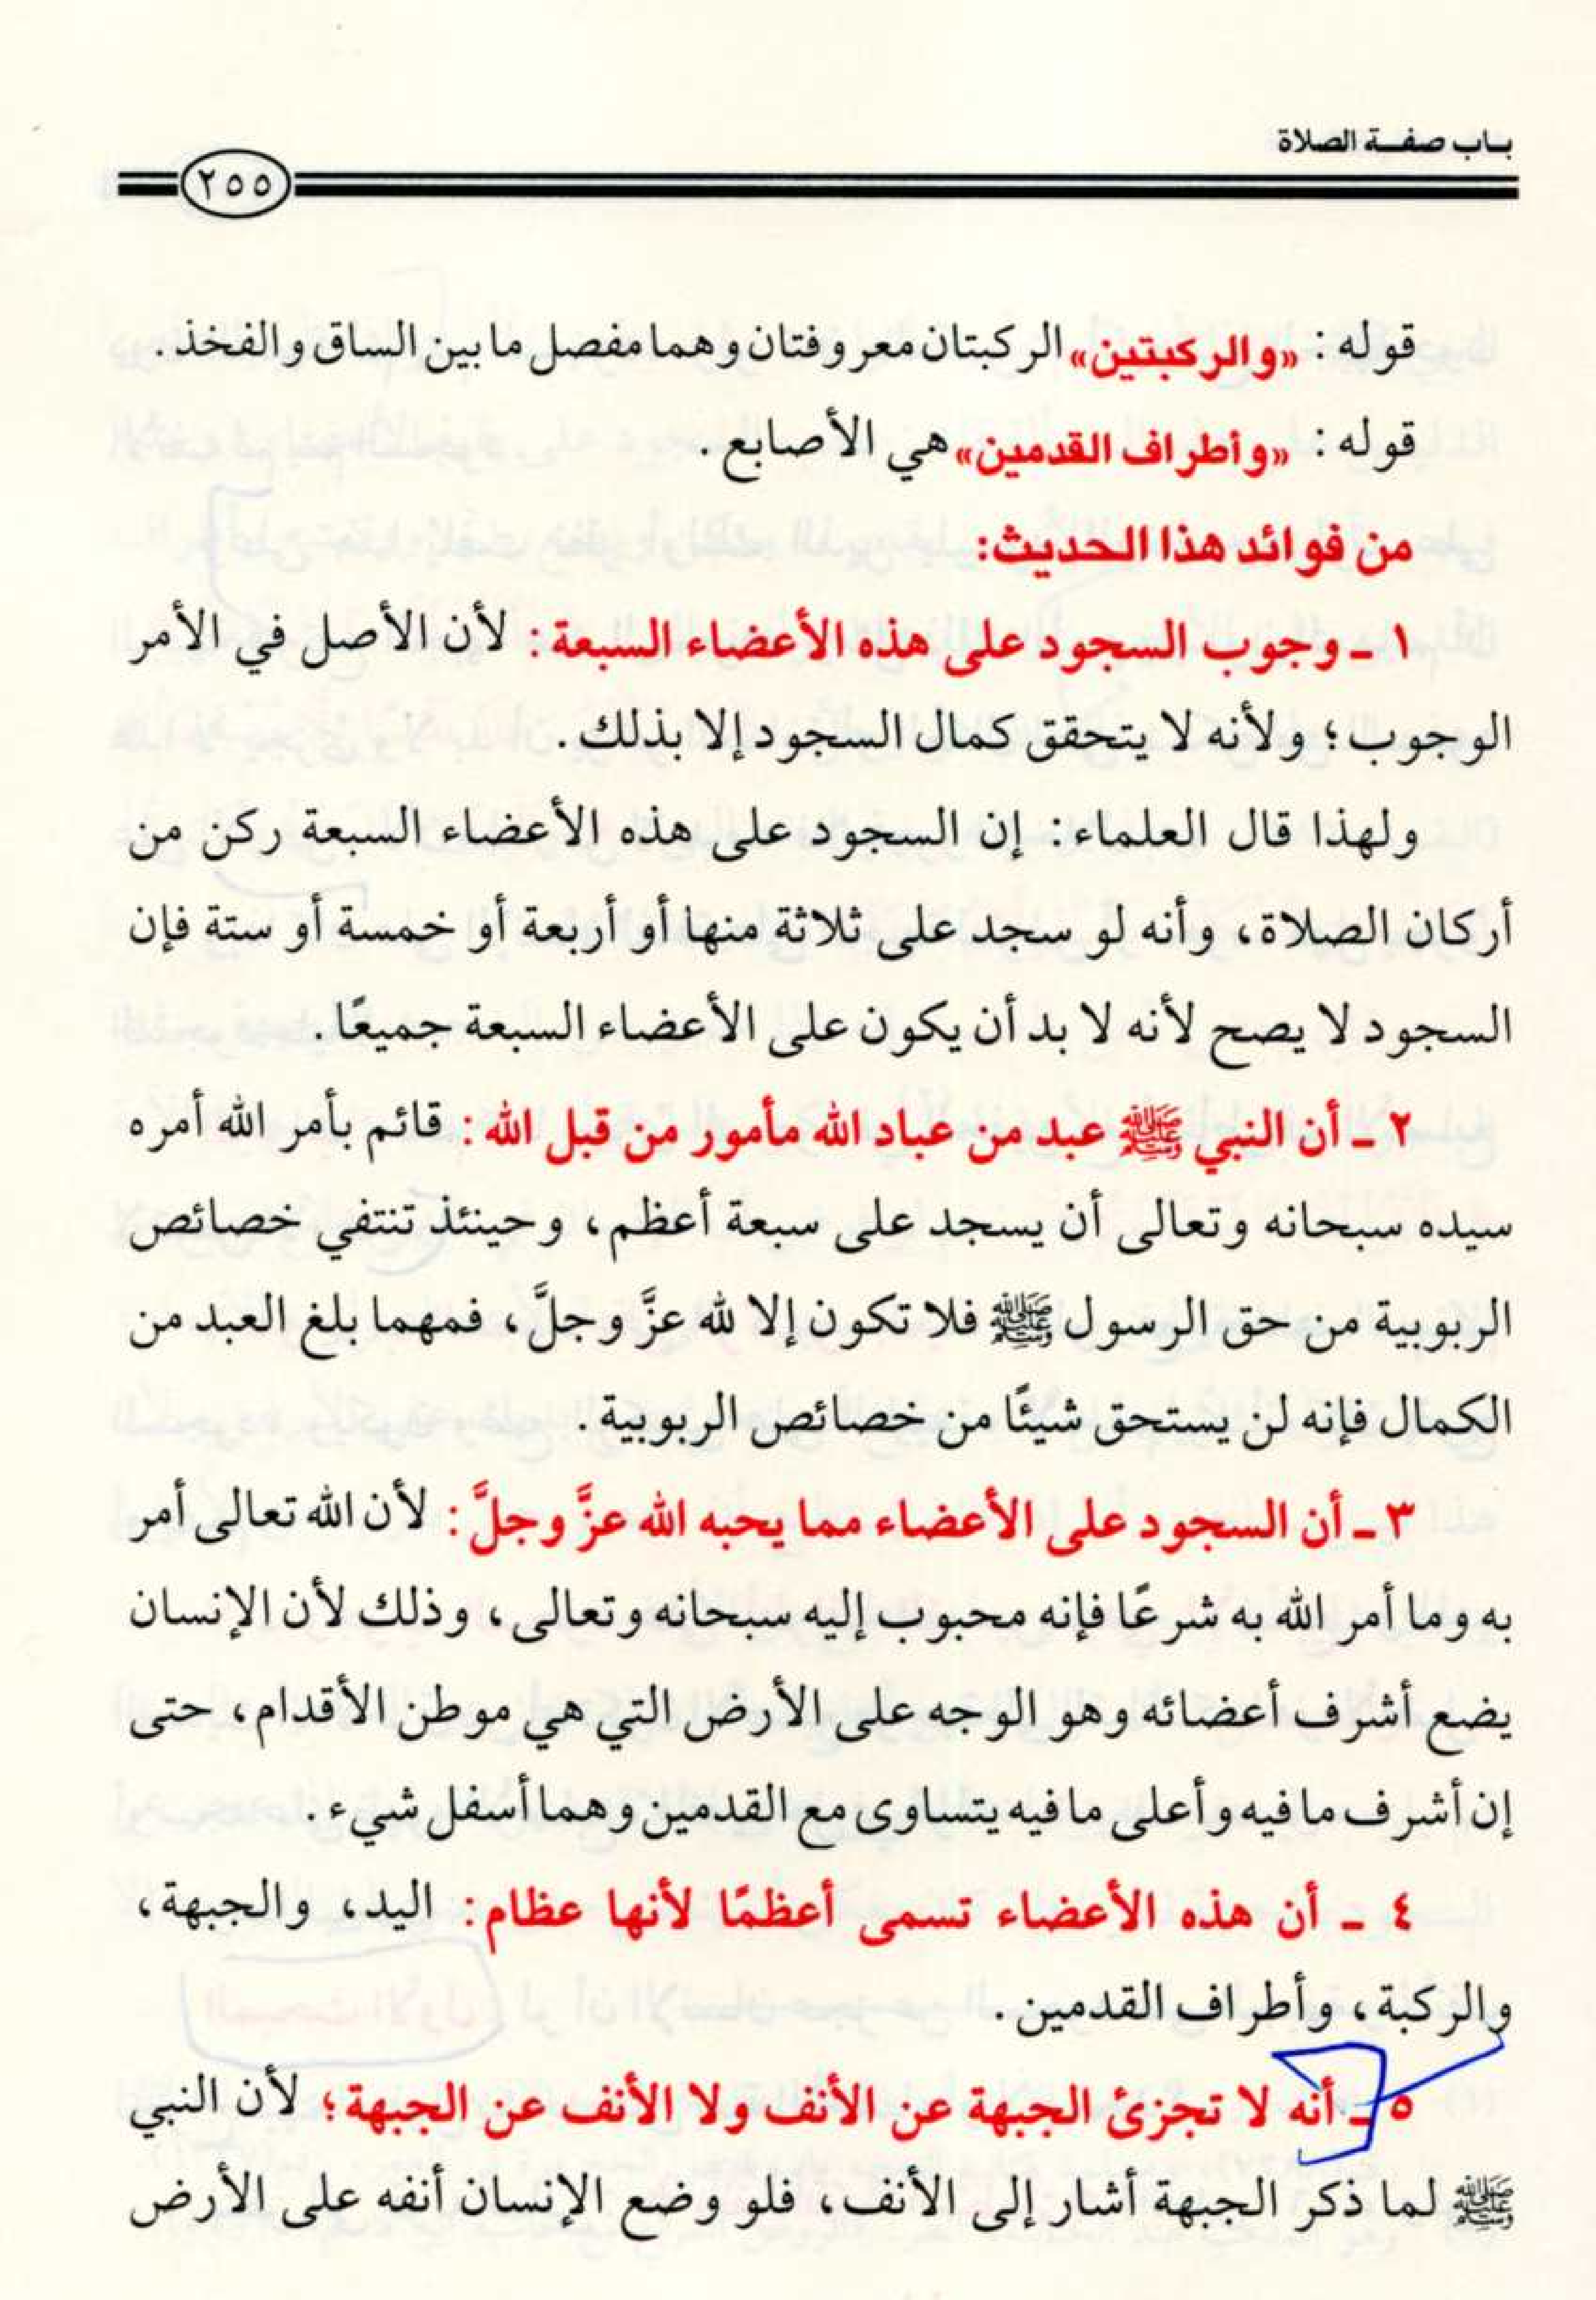 باب صفة الصلاة
٢٥٥
قوله: «والركبتين» الركبتان معروفتان وهما مفصل ما بين الساق والفخذ.
قوله: «وأطراف القدمين» هي الأصابع.
من فوائد هذا الحديث:
١ ـ وجوب السجود على هذه الأعضاء السبعة: لأن الأصل في الأمر
الوجوب؛ ولأنه لا يتحقق كمال السجود إلا بذلك.
ولهذا قال العلماء: إن السجود على هذه الأعضاء السبعة ركن من
أركان الصلاة، وأنه لو سجد على ثلاثة منها أو أربعة أو خمسة أو ستة فإن
السجود لا يصح لأنه لا بد أن يكون على الأعضاء السبعة جميعًا.
٢ ـ أن النبي ﷺ عبد من عباد الله مأمور من قبل الله: قائم بأمر الله أمره
سيده سبحانه وتعالى أن يسجد على سبعة أعظم، وحينئذ تنتفي خصائص
الربوبية من حق الرسول ﷺ فلا تكون إلا لله عزَّ وجلَّ، فمهما بلغ العبد من
الكمال فإنه لن يستحق شيئًا من خصائص الربوبية.
٣ ـ أن السجود على الأعضاء مما يحبه الله عزَّ وجلَّ: لأن الله تعالى أمر
به وما أمر الله به شرعًا فإنه محبوب إليه سبحانه وتعالى، وذلك لأن الإنسان
يضع أشرف أعضائه وهو الوجه على الأرض التي هي موطن الأقدام، حتى
إن أشرف ما فيه وأعلى ما فيه يتساوى مع القدمين وهما أسفل شيء.
٤ ـ أن هذه الأعضاء تسمى أعظمًا لأنها عظام: اليد، والجبهة،
والركبة، وأطراف القدمين.
٥ ـ أنه لا تجزئ الجبهة عن الأنف ولا الأنف عن الجبهة؛ لأن النبي
ﷺ لما ذكر الجبهة أشار إلى الأنف، فلو وضع الإنسان أنفه على الأرض